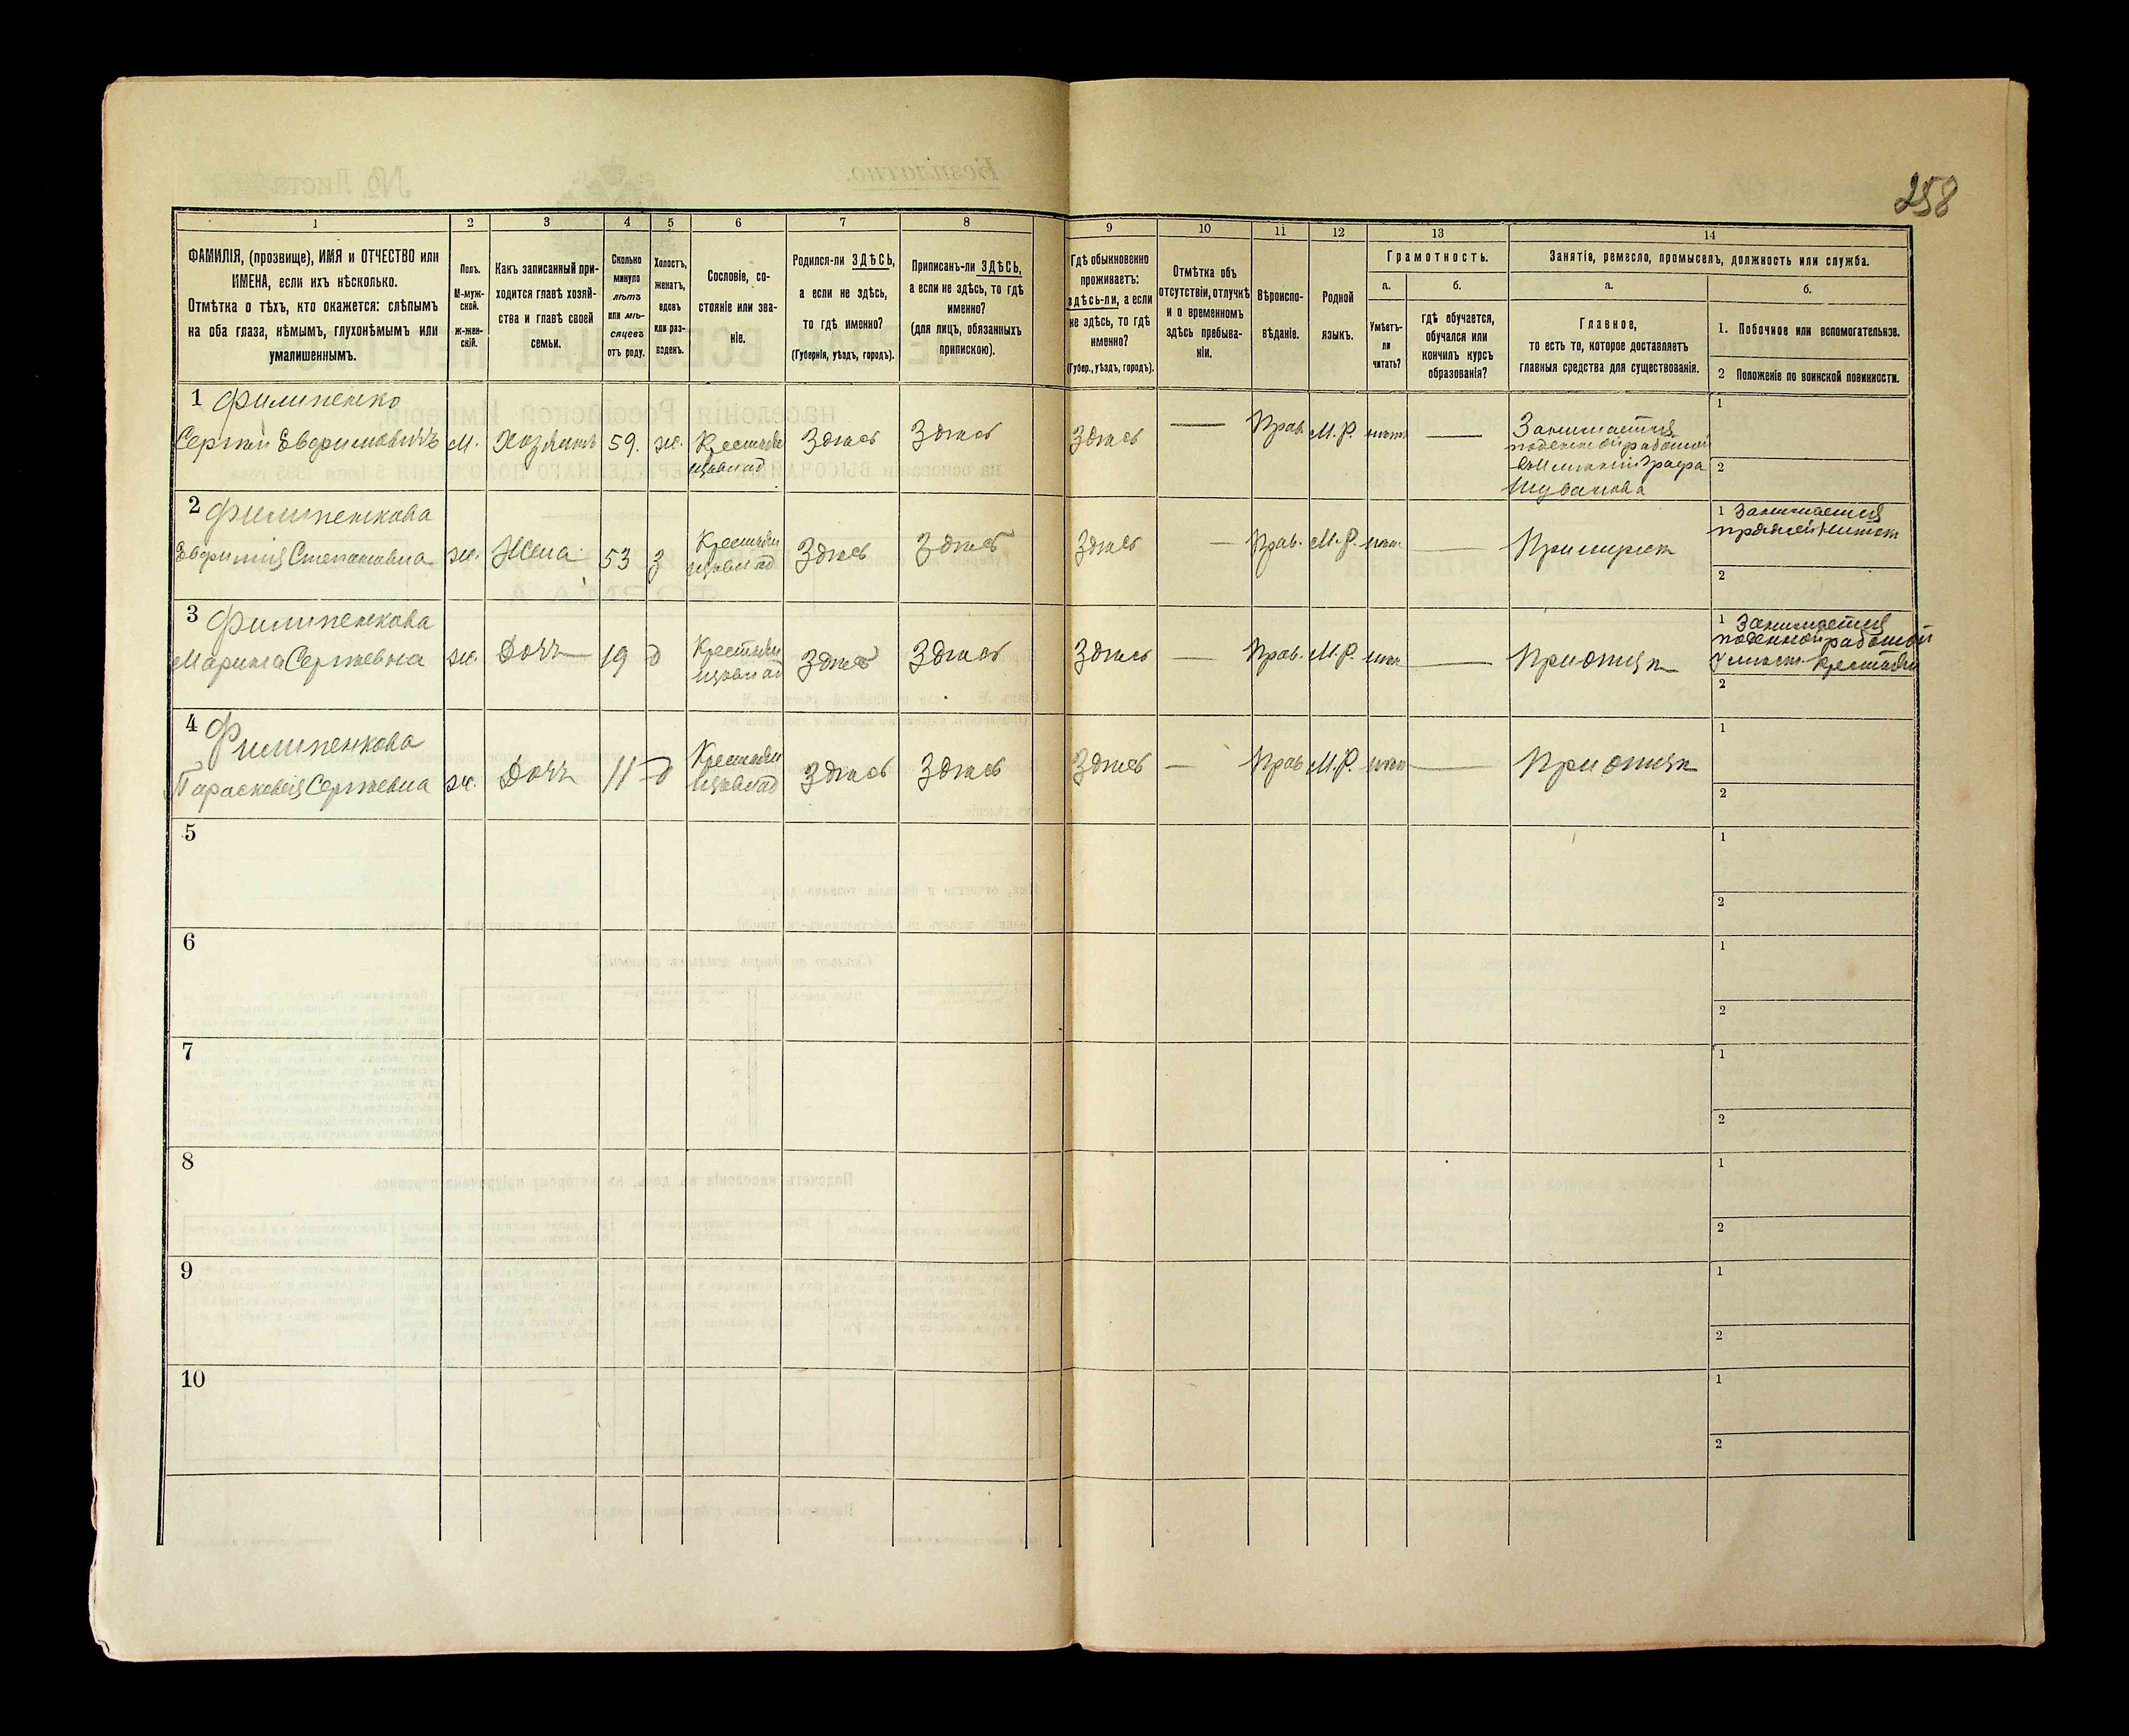 258
1
2
3
4
5
6
7
8
9
10
11
12
13
14
ФАМИЛІЯ, (прозвище), ИМЯ и ОТЧЕСТВО или
ИМЕНА, если ихъ нѣсколько.
Отмѣтка о тѣхъ, кто окажется: слѣпымъ
на оба глаза, нѣмымъ, глухонѣмымъ или
умалишеннымъ.
Полъ.
М-муж-
ской.
Ж-жен-
скій.
Какъ записанный при-
ходится главѣ хозяй-
ства и главѣ своей
семьи.
Сколько
минуло
лѣтъ
или мѣ-
сяцевъ
отъ роду.
Холостъ,
женатъ,
вдовъ
или раз-
веденъ.
Сословіе, со-
стояніе или зва-
ніе.
Родился-ли ЗДѢСЬ,
а если не здѣсь,
то гдѣ именно?
(Губернія, уѣздъ, городъ).
Приписанъ-ли ЗДѢСЬ,
а если не здѣсь, то гдѣ
именно?
(для лицъ, обязанныхъ
припискою).
Гдѣ обыкновенно
проживаетъ:
здѣсь-ли, а если
не здѣсь, то гдѣ
именно?
(Губер., уѣздъ, городъ).
Отмѣтка объ
отсутствіи, отлучкѣ
и о временномъ
здѣсь пребыва-
ніи.
Вѣроиспо-
вѣданіе.
Родной
языкъ.
Грамотность.
а.
Умѣетъ-
ли
читать?
б.
гдѣ обучается,
обучался или
кончилъ курсъ
образованія?
Занятія, ремесло, промыселъ, должность или служба.
а.
Главное,
то есть то, которое доставляетъ
главныя средства для существованія.
б.
1. Побочное или вспомогательное.
2 Положеніе по воинской повинности.
1 Филипенко
Сергѣй Евфимовичъ М. Хозяинъ 59. ж. Крестьян Здѣсь Здѣсь Здѣсь — Прав. М. Р. нѣтъ — Занимается
поденной работой
Графа
Шувалова
1
2
2 Филипенкова
Евфимія Степановна ж. Жена 53 З Крестьян Здѣсь Здѣсь Здѣсь — Прав. М. Р. нѣт — При мужѣ
1 Занимается
пряжей нитокъ
2
3 Филипенкова
Марина Сергѣевна ж. Дочь 19 д Крестьян Здѣсь Здѣсь Здѣсь — Прав. М. Р. нѣт — При отцѣ
1 Занимается
поденной работой
2
4 Филипенкова
Парасковія Сергѣевна ж. Дочь 11 д Крестьян Здѣсь Здѣсь Здѣсь — Прав М. Р. нѣт — При отцѣ
1
2
5
1
2
6
1
2
7
1
2
8
1
2
9
1
2
10
1
2